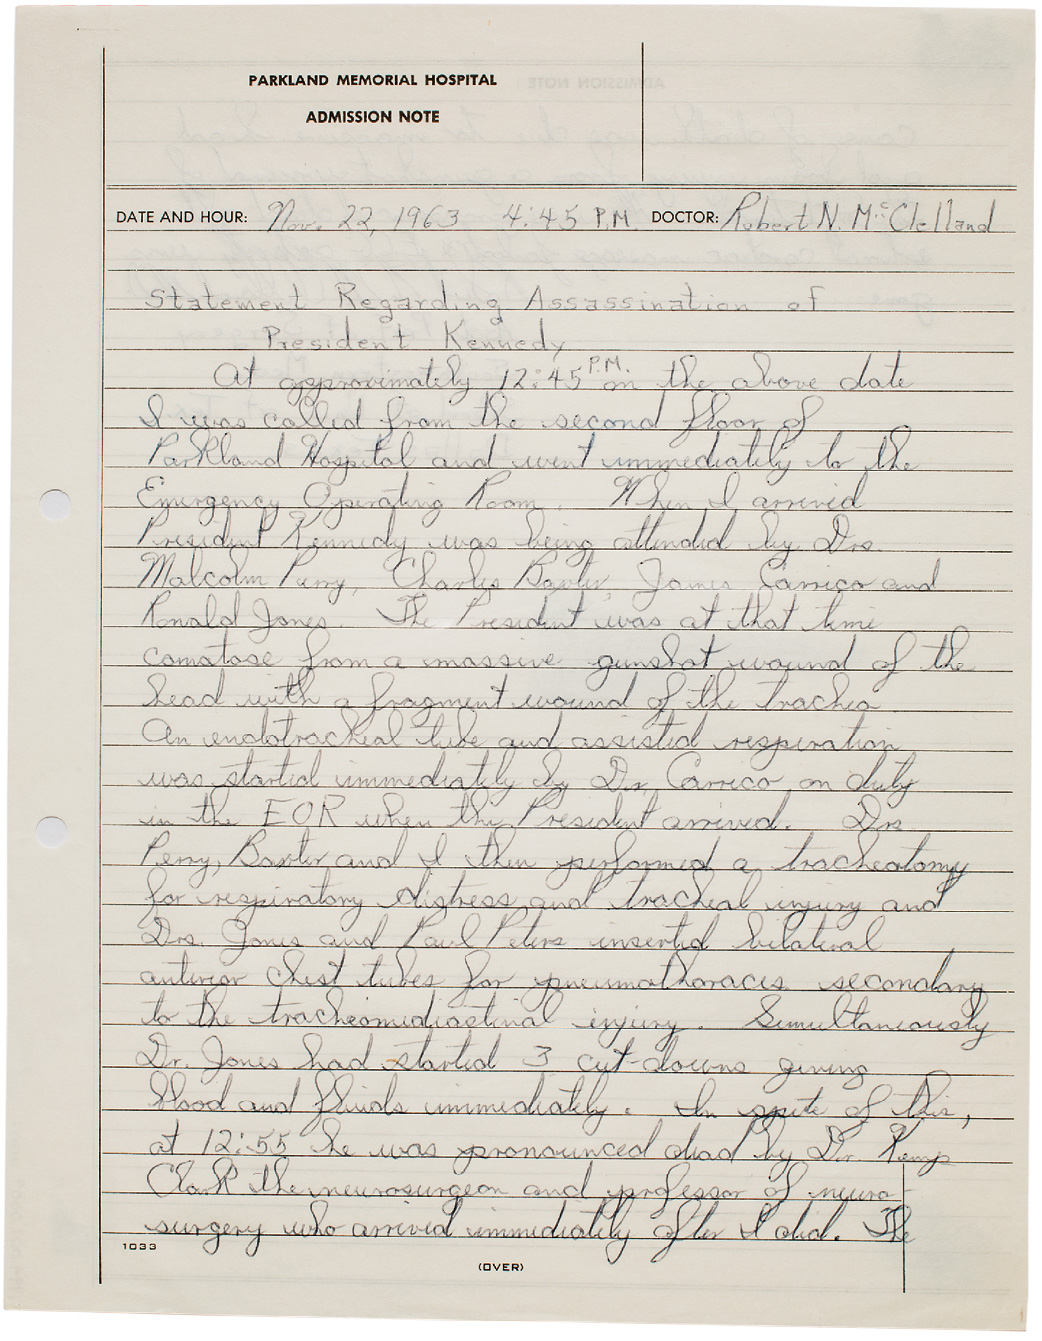 PARKLAND MEMORIAL HOSPITAL
ADMISSION NOTE
DATE AND HOUR: Nov. 22, 1963 4:45 P.M. DOCTOR: Robert N. McClelland
Statement Regarding Assassination of
President Kennedy
At approximately 12:45 P.M. on the above date
I was called from the second floor of
Parkland Hospital and went immediately to the
Emergency Operating Room. When I arrived
President Kennedy was being attended by Drs.
Malcolm Perry, Charles Baxter, James Carrico and
Ronald Jones. The President was at that time
comatose from a massive gunshot wound of the
head with a fragment wound of the trachea.
An endotracheal tube and assisted respiration
was started immediately by Dr. Carrico on duty
in the EOR when the President arrived. Drs.
Perry, Baxter and I then performed a tracheotomy
for respiratory distress and tracheal injury and
Drs. Jones and Paul Peters inserted bilateral
anterior chest tubes for pneumothoracis secondary
to the tracheomediastinal injury. Simultaneously
Dr. Jones had started 3 cut-downs giving
blood and fluids immediately. In spite of this,
at 12:55 he was pronounced dead by Dr. Kemp
Clark the neurosurgeon and professor of neuro-
surgery who arrived immediately after I did. The
1033
(OVER)